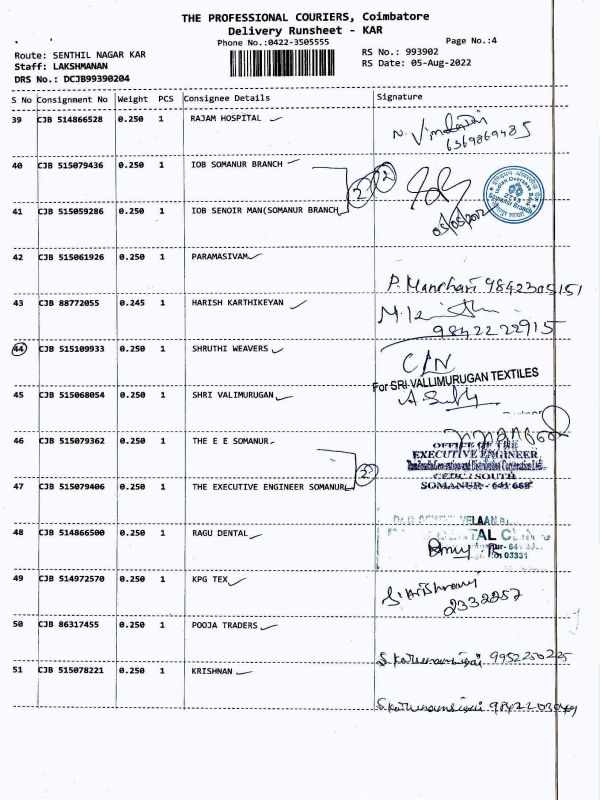 THE PROFESSIONAL COURIERS, Coimbatore
Delivery Runsheet - KAR
Phone No.:0422-3505555
Page No.:4
Route: SENTHIL NAGAR KAR
RS No.: 993902
Staff: LAKSHMANAN
RS Date: 05-Aug-2022
DRS No.: DCJB99390204
S No Consignment No Weight PCS Consignee Details Signature
39 CJB 514866528 0.250 1 RAJAM HOSPITAL
6369869435
40 CJB 515079436 0.250 1 IOB SOMANUR BRANCH
2 2
41 CJB 515059286 0.250 1 IOB SENOIR MAN(SOMANUR BRANCH
42 CJB 515061926 0.250 1 PARAMASIVAM
P. Manohari 9842305151
43 CJB 88772055 0.245 1 HARISH KARTHIKEYAN
9842222915
44 CJB 515109933 0.250 1 SHRUTHI WEAVERS
C/N
For SRI VALLIMURUGAN TEXTILES
45 CJB 515068054 0.250 1 SHRI VALIMURUGAN
46 CJB 515079362 0.250 1 THE E E SOMANUR
OFFICE OF THE
EXECUTIVE ENGINEER
47 CJB 515079406 0.250 1 THE EXECUTIVE ENGINEER SOMANUR
CEDC / SOUTH
SOMANUR - 641 668
48 CJB 514866500 0.250 1 RAGU DENTAL
49 CJB 514972570 0.250 1 KPG TEX
2332257
50 CJB 86317455 0.250 1 POOJA TRADERS
9952250225
51 CJB 515078221 0.250 1 KRISHNAN